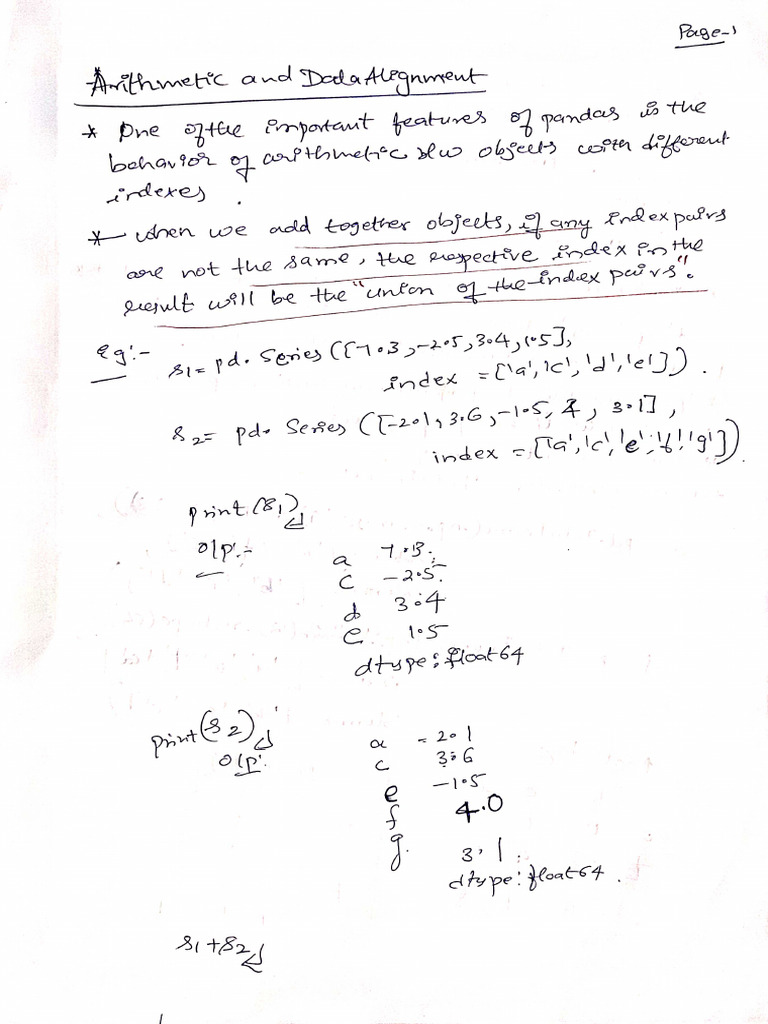 Page-1
Arithmetic and Data Alegnment
* One of the important features of pandas is the
behavior of arithmetic b/w objects with different
indexes.
* when we add together objects, if any index pairs
are not the same, the respective index in the
result will be the "union of the index pairs".
Eg:- s1 = pd. Series ([7.3, -2.5, 3.4, 1.5],
index = ['a', 'c', 'd', 'e']).
s2 = pd. Series ([-2.1, 3.6, -1.5, 4, 3.1],
index = ['a', 'c', 'e', 'f', 'g'])
print (s1)
o/p:- a 7.3
c -2.5
d 3.4
e 1.5
dtype: float64
print (s2)
o/p: a -2.1
c 3.6
e -1.5
f 4.0
g 3.1
dtype: float64.
s1 + s2